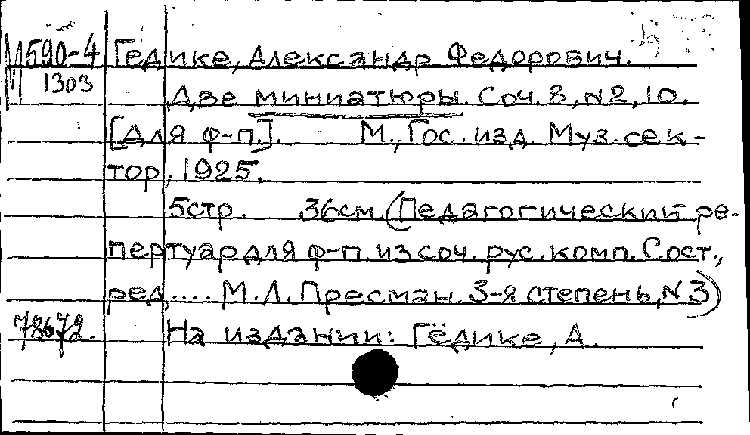 М590-4 Гедике, Александр Федорович.
1303
Две миниатюры. Соч. 8, №2, 10.
[Для ф-п.]. М., Гос. изд. Муз. сек-
тор, 1925.
5стр. 36см. (Педагогический ре-
пертуар для ф-п. из соч. рус. комп. Сост.,
ред.... М.Л. Пресман. 3-я степень, №3)
78672. На издании: Гёдике, А.